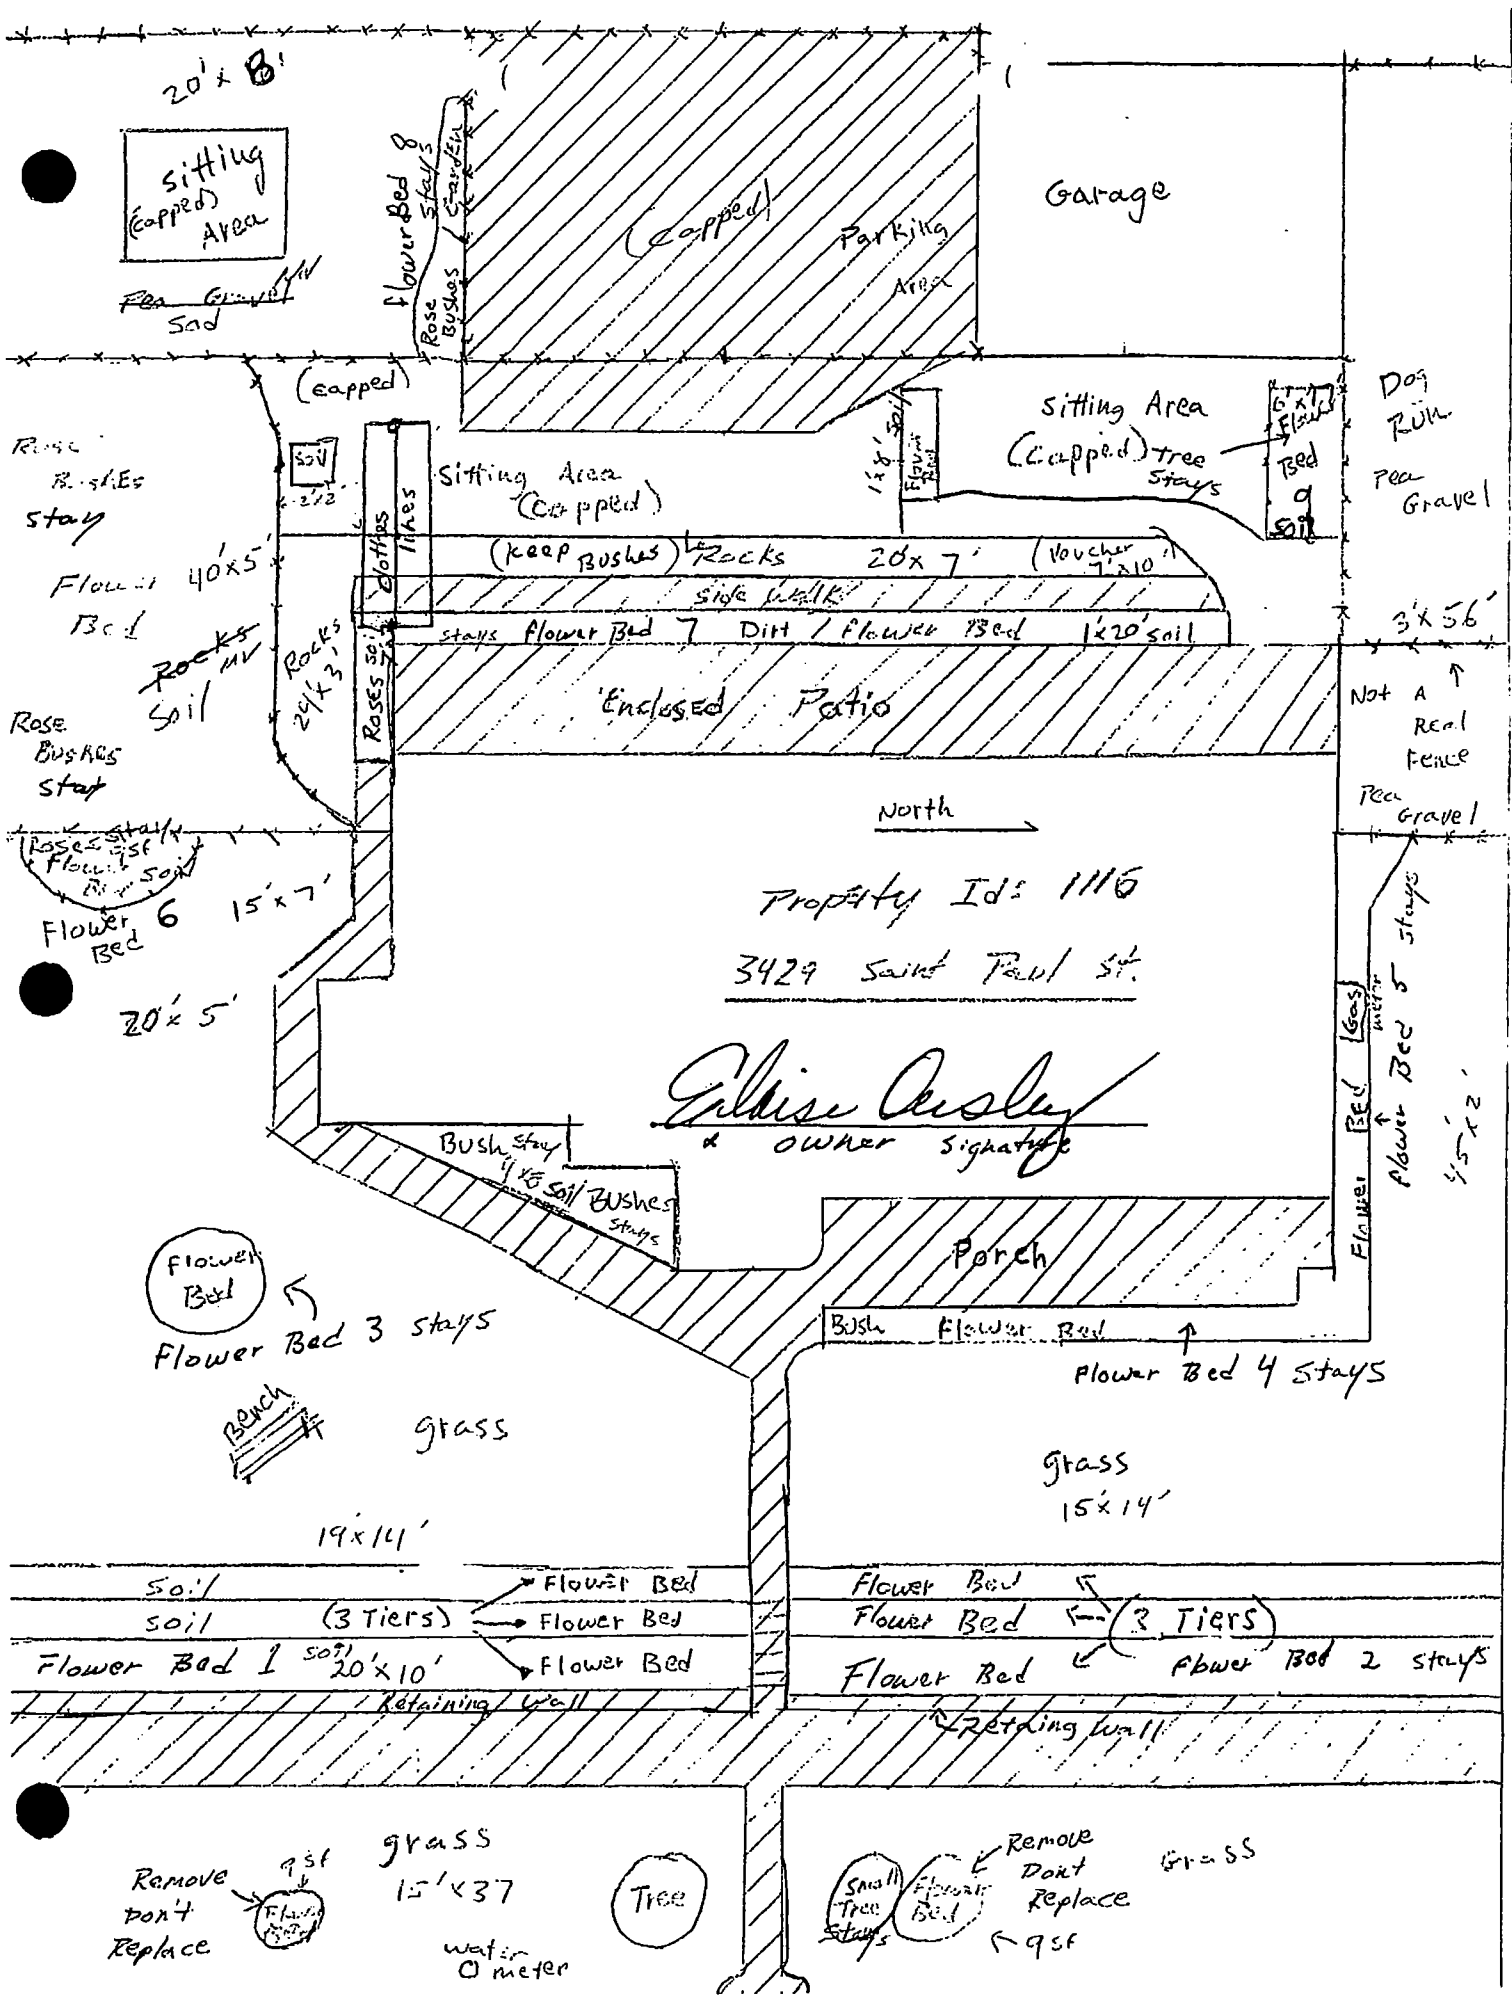 20' x 8'
sitting
(capped)
Area
Pea Gravel MV
Sod
Flower Bed 8
Stays
Garden
Rose
Bushes
(capped)
Parking
Area
Garage
(capped)
Rose
Bushes
stay
Soil
2'x2'
clothes
lines
Sitting Area
(capped)
1'x8' soil
Flower
Bed
Sitting Area
(Capped) tree
Stays
6'x7'
Flower
Bed
soil
Dog
Run
Pea
Gravel
Flower 40'x5'
Bed
Rocks MV
Soil
Rocks
24'x3'
(Keep Bushes) Rocks 20'x7' (Voucher
7'x10')
Side Walk
stays Flower Bed 7 Dirt / Flower Bed 1'x20' soil
Roses soil
3'x56'
Enclosed Patio
Not A
Real
Fence
Rose
Bushes
stay
Pea
Gravel
North
Roses stay
9sf
Flower
Bed soil
Flower 6
Bed
15'x7'
Property Id: 1116
3429 Saint Paul St.
20'x5'
Eloise Ousley
x owner signature
Gas
meter
Flower Bed 5 stays
45'x2'
Flower Bed
Bush stay
soil Bushes
stays
Porch
Flower
Bed
Flower Bed 3 stays
Bush Flower Bed
Flower Bed 4 stays
Bench
grass
grass
15'x14'
19'x14'
Soil Flower Bed Flower Bed
soil (3 Tiers) Flower Bed Flower Bed (3 Tiers)
Flower Bed 1 soil 20'x10' Flower Bed Flower Bed Flower Bed 2 stays
Retaining Wall
Retaing Wall
Remove
Don't
Replace
9sf
Flower
Bed
grass
15'x37
water
meter
Tree
Small
Tree
Stays
Flower
Bed
Remove
Don't
Replace
9sf
Grass